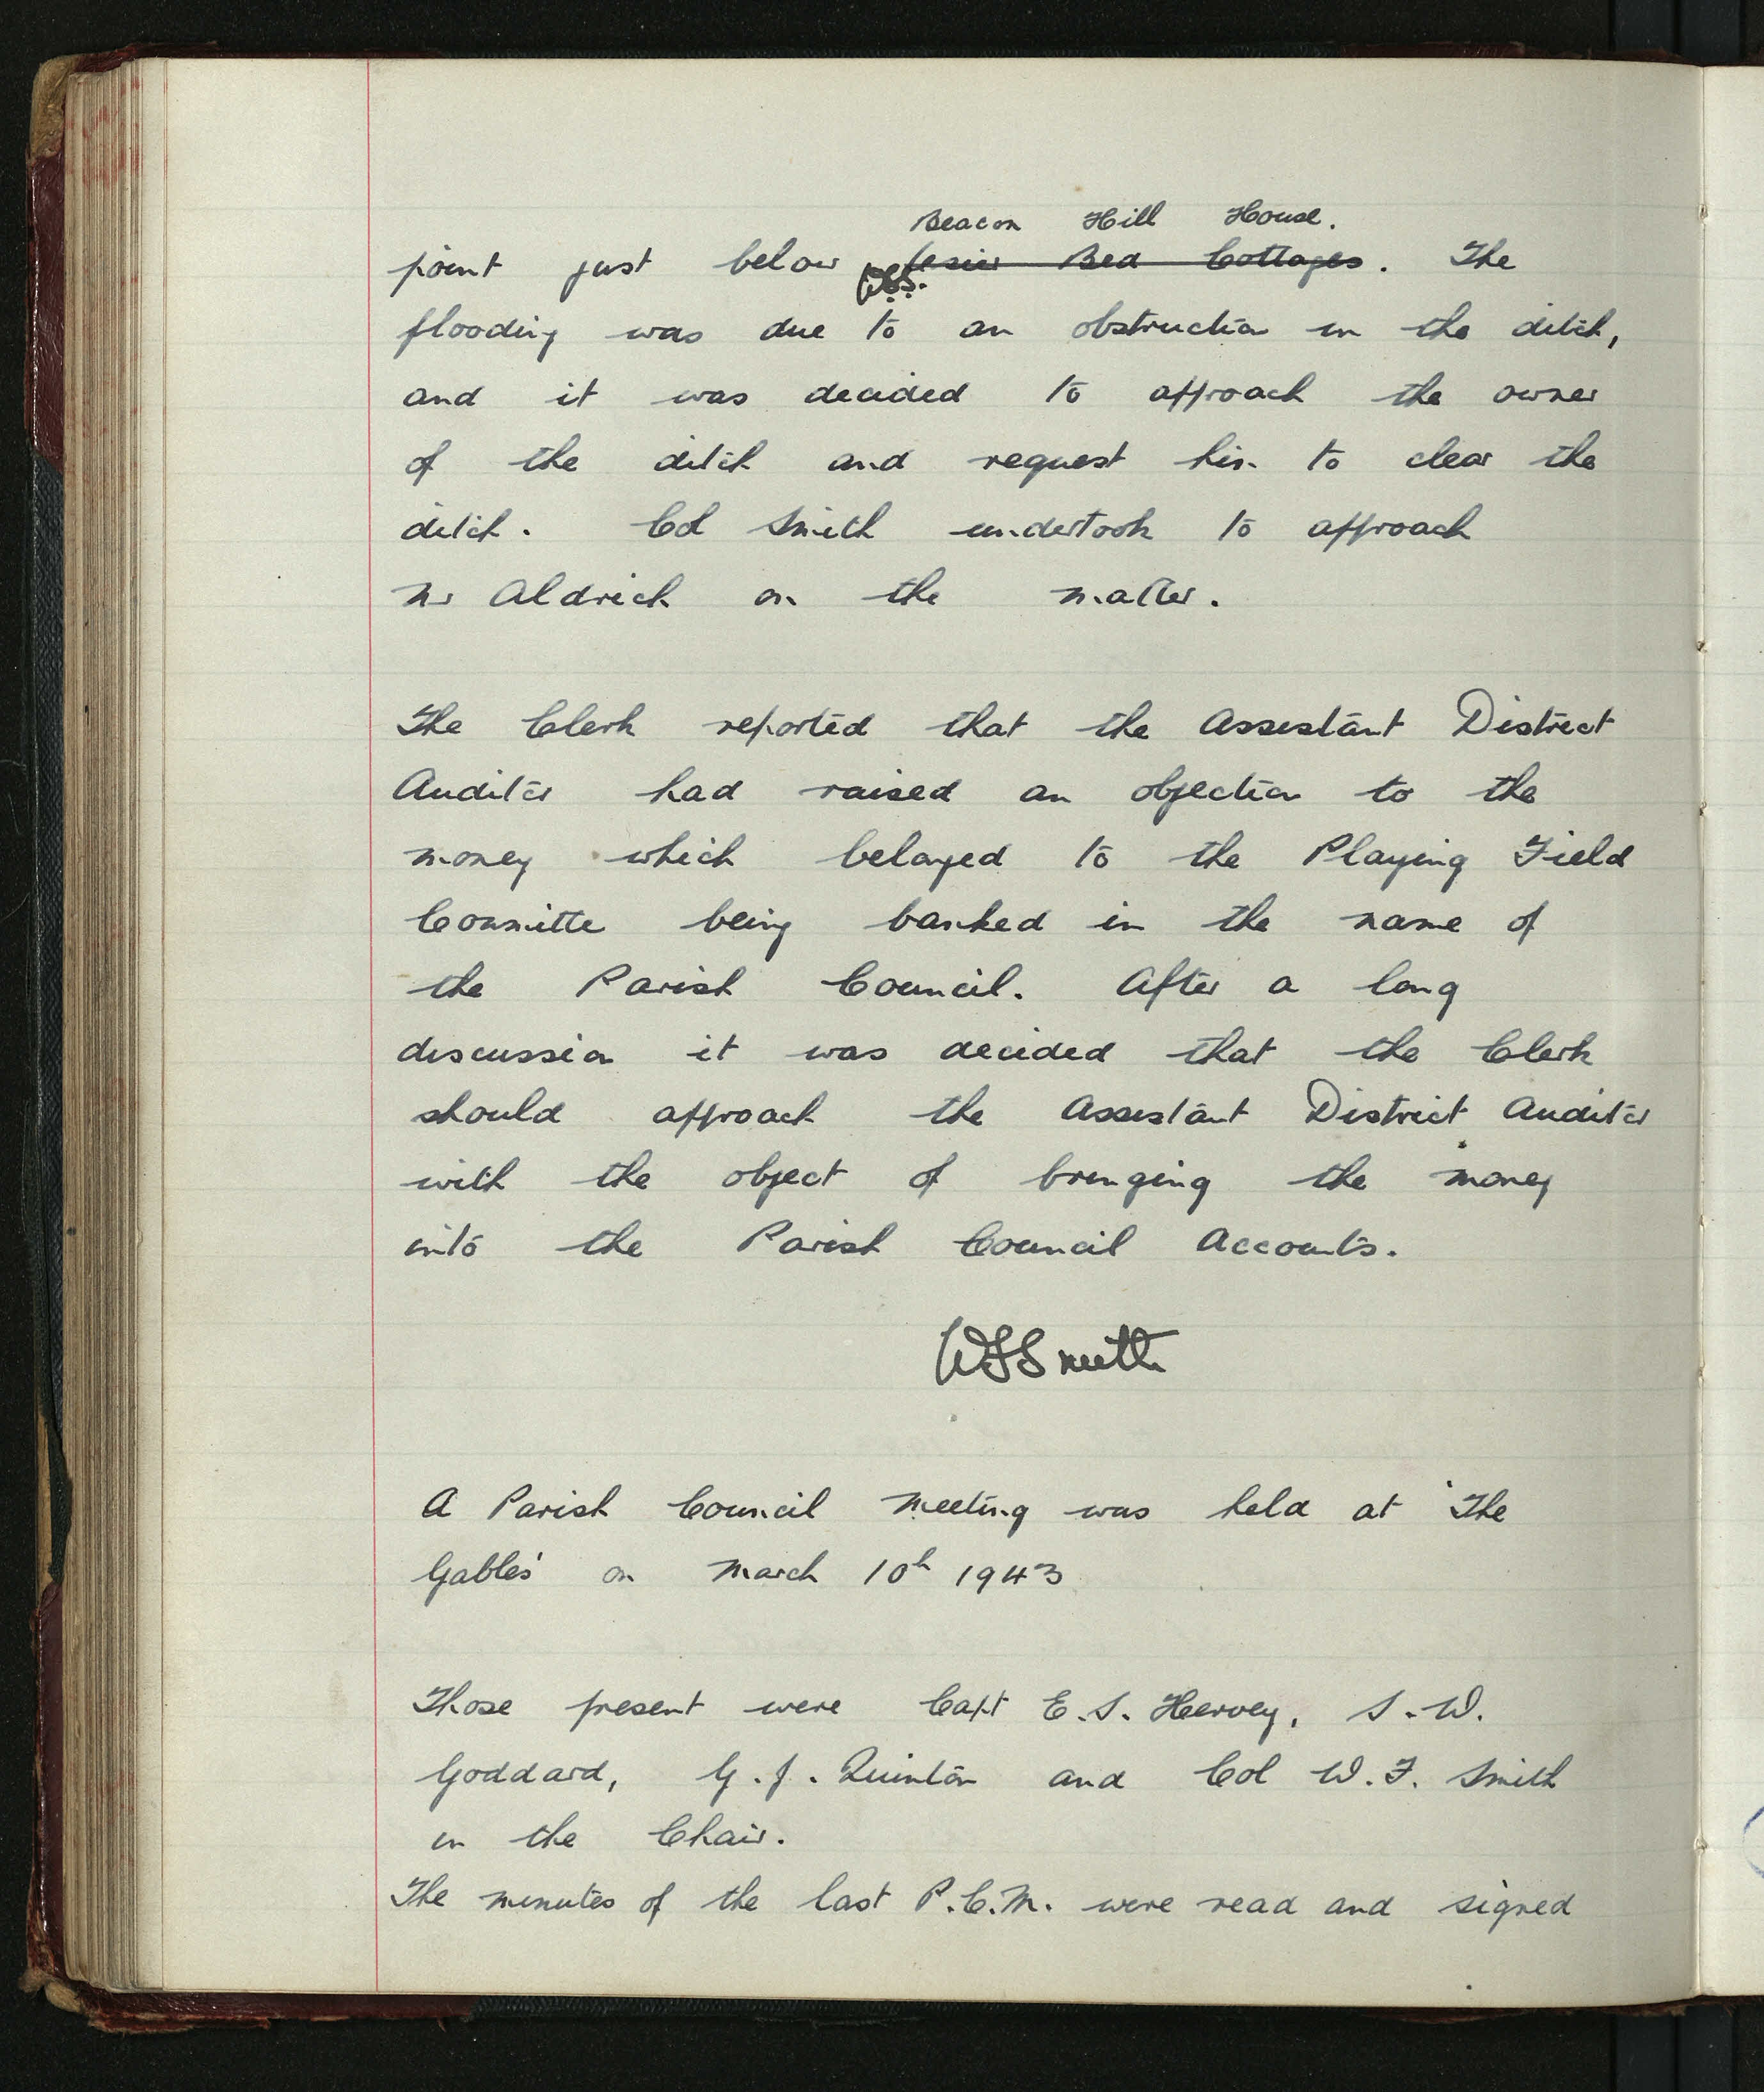 Beacon Hill House.
point just below Osier Bed Cottages. The
WFS.
flooding was due to an obstruction in the ditch,
and it was decided to approach the owner
of the ditch and request him to clear the
ditch. Col Smith undertook to approach
Mr Aldrich on the matter.
The Clerk reported that the Assistant District
Auditor had raised an objection to the
money which belonged to the Playing Field
Committe being banked in the name of
the Parish Council. After a long
discussion it was decided that the Clerk
should approach the Assistant District Auditor
with the object of bringing the money
into the Parish Council Accounts.
WFSmith
A Parish Council Meeting was held at 'The
Gables' on March 10th 1943
Those present were Capt E.S. Hervey, S.W.
Goddard, G.J. Quinton and Col W.F. Smith
in the Chair.
The minutes of the last P.C.M. were read and signed